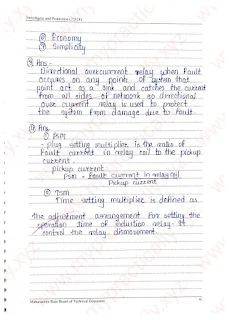 Switchgear and Protection (22524)
③ Economy
④ Simplicity
Ans -
Directional overcurrent relay when fault
occures on any points of system that
point act as a sink and catches the current
from all sides of network so directional
over current relay is used to protect
the system from damage due to fault
Ans
① PSM
- plug setting multiplier is the ratio of
fault current in relay coil to the pickup
current.
pickup current
PSM = Fault current in relay coil
Pickup current
② TSM
Time setting multiplier is defined as
the adjustment arrangement for setting the
operation time of induction relay. It
control the relay dismovement.
Maharashtra State Board of Technical Education